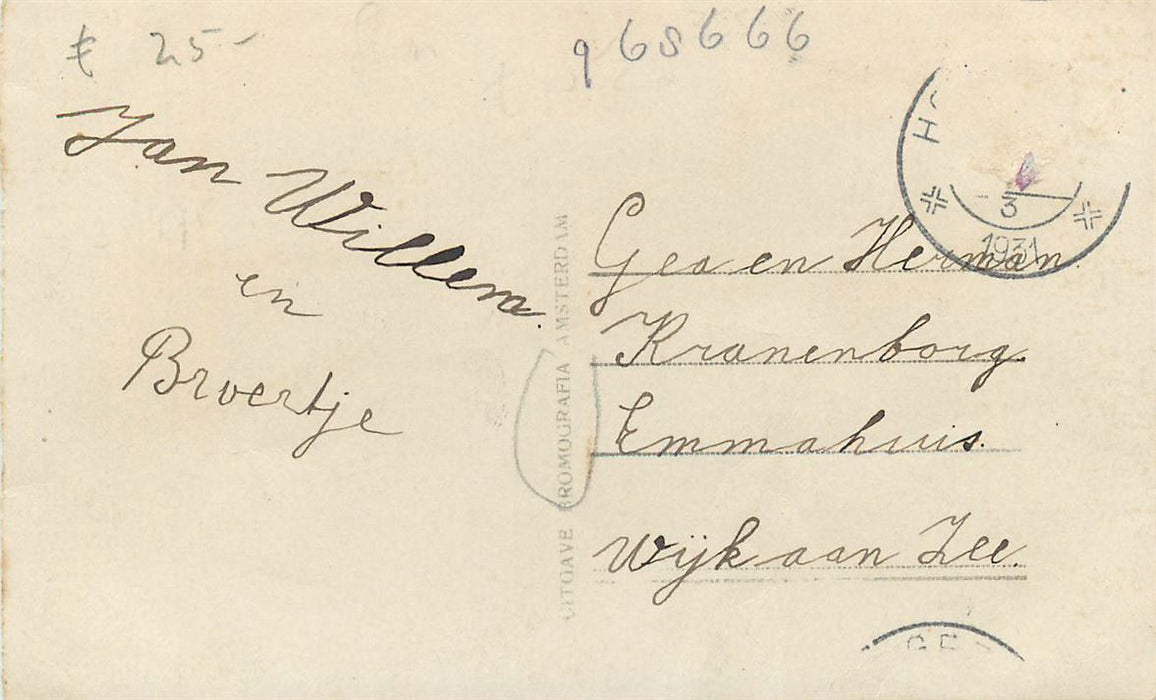 € 25-
968666
Jan Willem
en
Broertje
UITGAVE BROMOGRAFIA AMSTERDAM
H
3
1931
Gea en Herman
Kranenborg
Emmahuis.
Wijk aan Zee.